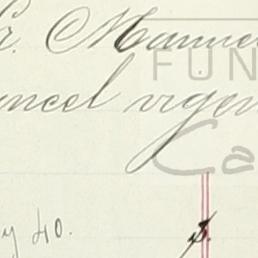 r. Manue
FUN
ncel vigen
Ca
y 40.